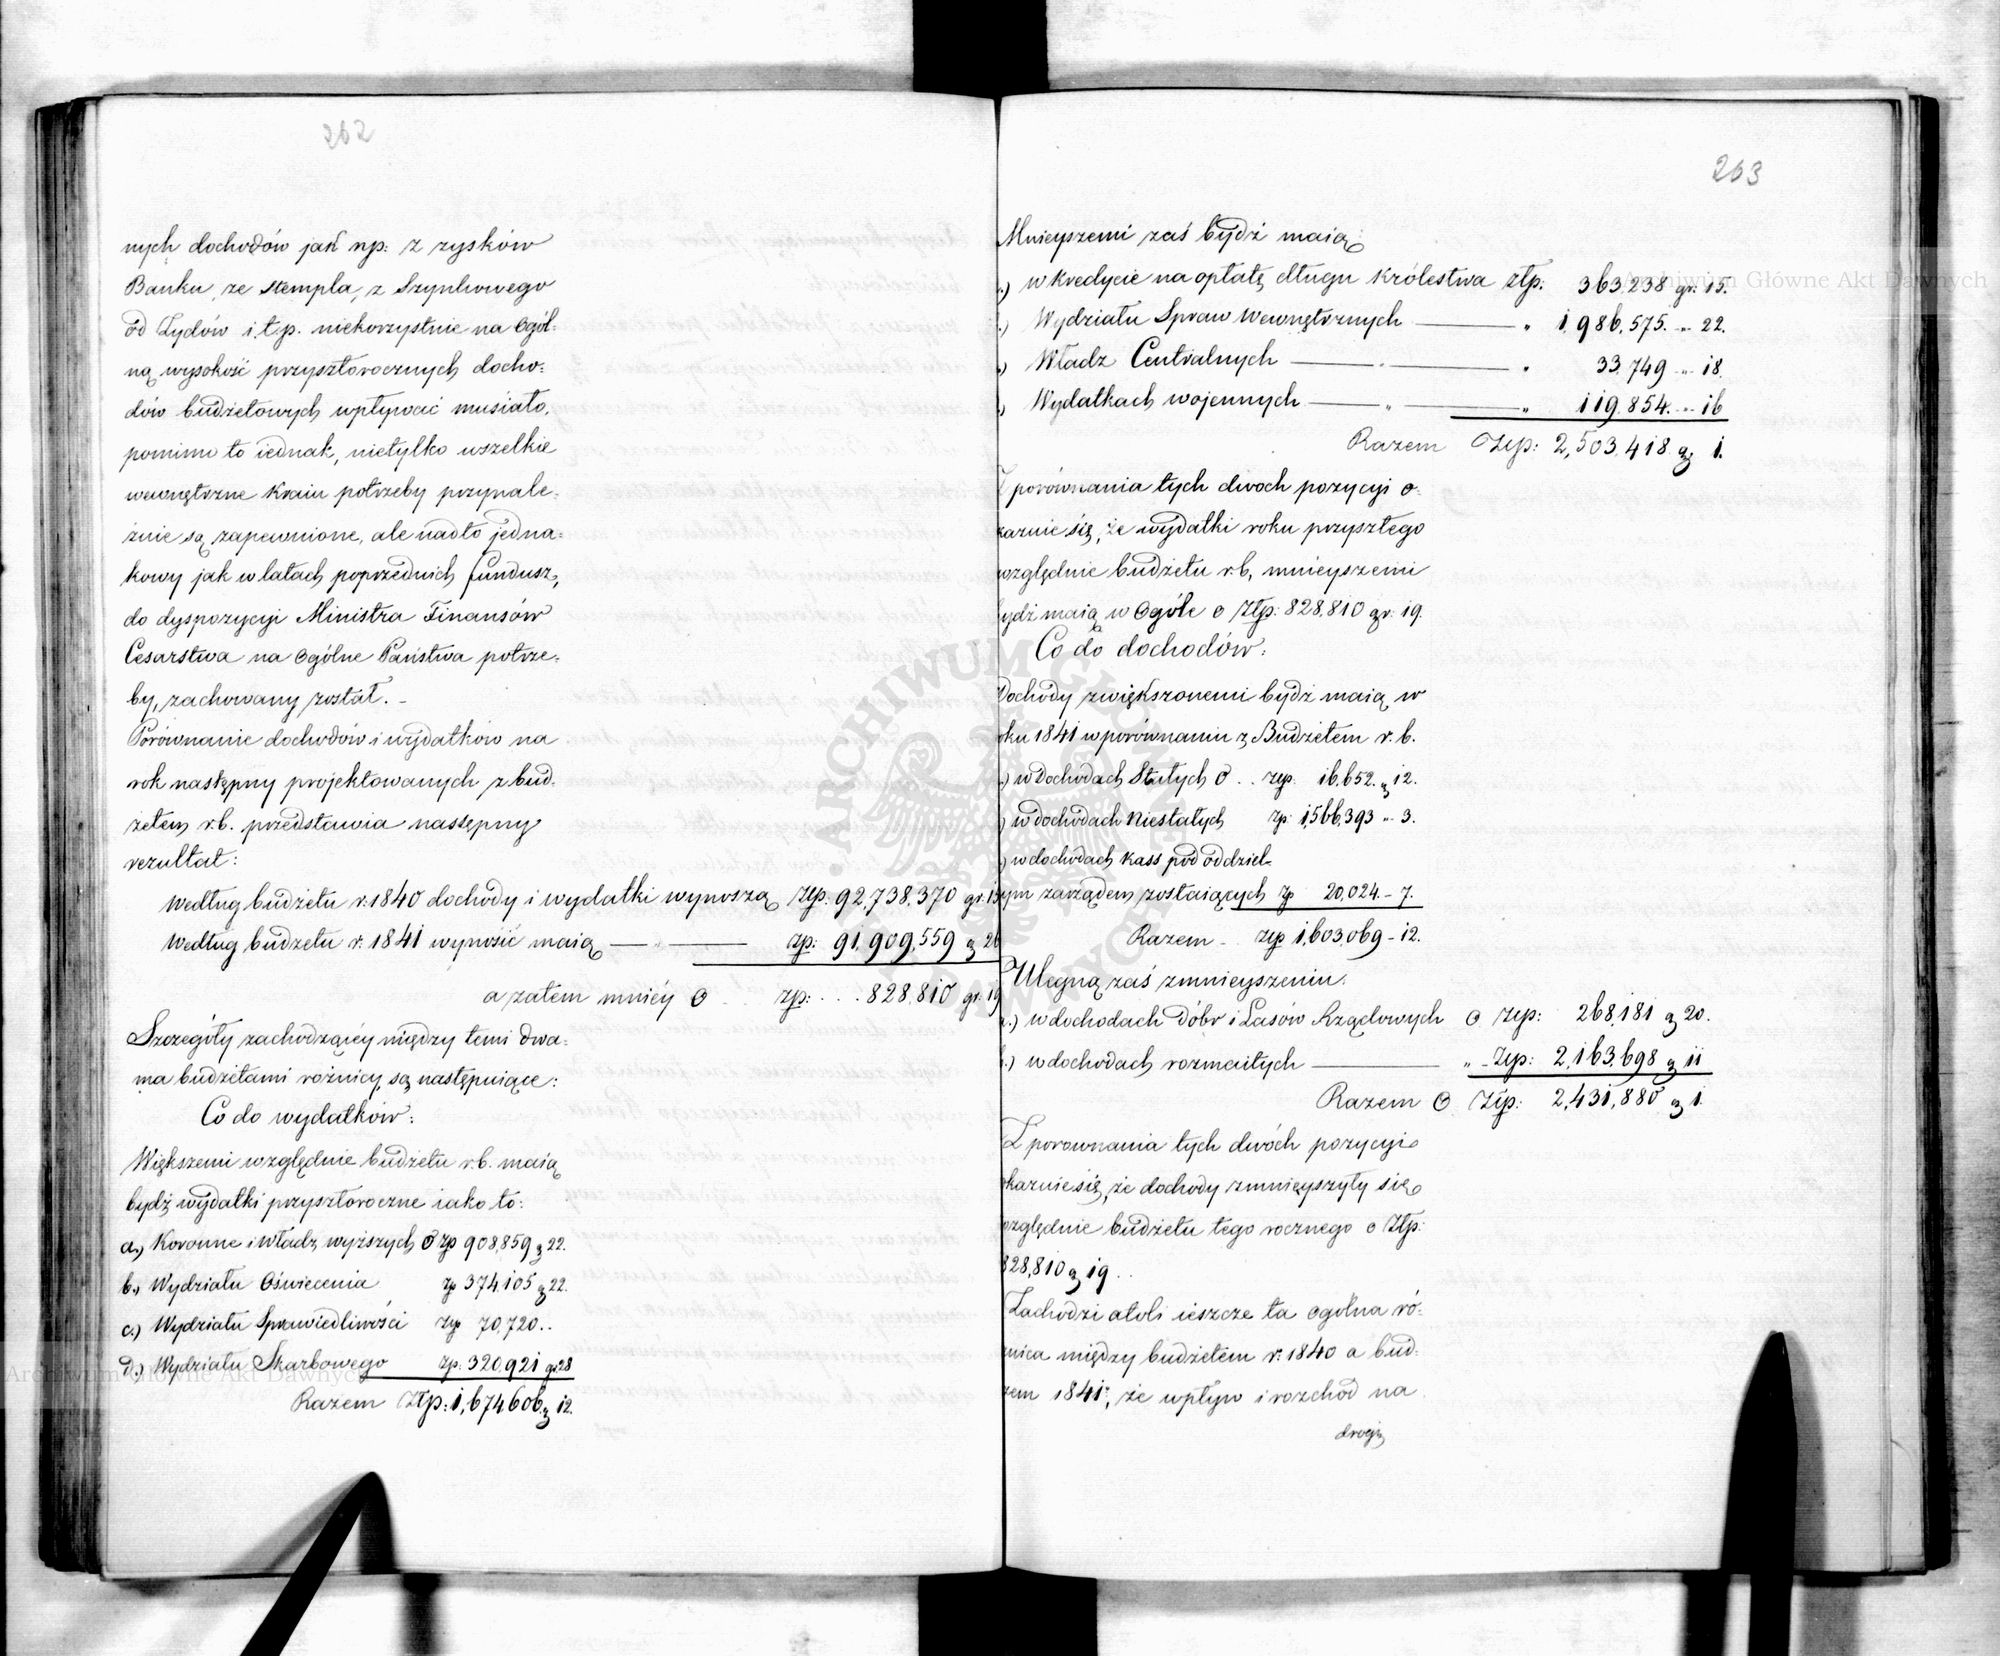 262
nych dochodów jak np: z zysków
Banku, ze stempla, z Szynkowego
od Żydów i t.p. niekorzystnie na ogól-
ną wysokość przyszłorocznych docho-
dów budżetowych wpływać musiało,
pomimo to iednak, nietylko wszelkie
wewnętrzne kraiu potrzeby przynale-
żnie są zapewnione, ale nadto jedna-
kowy jak w latach poprzednich fundusz,
do dyspozycyi Ministra Finansów
Cesarstwa na ogólne Państwa potrze-
by, zachowany został. -
Porównanie dochodów i wydatków na
rok następny projektowanych z bud-
żetem r.b. przedstawia następny
rezultat:
według budżetu r. 1840 dochody i wydatki wynoszą złp: 92,738,370 gr. 15
według budżetu r. 1841 wynosić maią — " — zp: 91,909,559 g 26
a zatem mniéy o . . zp: . . . 828,810 gr. 19
Szczegóły zachodzącéy między temi dwa-
ma budżetami różnicy, są następuiące:
Co do wydatków:
Większemi względnie budżetu r.b. maią
bydź wydatki przyszłoroczne iako to:
a.) Koronne i Władz wyższych o zp 908,859 g 22.
b.) Wydziału Oświecenia zp 374,105 g 22.
c.) Wydziału Sprawiedliwości złp 70,720 . .
d.) Wydziału Skarbowego zp: 320,921 gr 28
Razem Złp: 1,674,606 g 12.
263
Mnieyszemi zaś bydź maią:
.) w kredycie na opłatę długu Królestwa złp: 363,238 gr: 15.
.) Wydziału Spraw Wewnętrznych — " 1,986,575. -"- 22.
.) Władz Centralnych — " — " 33,749 -"- 18.
.) Wydatkach wojennych — " — " 119,854. -"- 16
Razem Złp: 2,503,418 g 1.
Z porównania tych dwoch pozycyi o-
kazuie się, że wydatki roku przyszłego
względnie budżetu r.b, mnieyszemi
bydź maią w ogóle o Złp: 828,810 gr: 19.
Co do dochodów:
Dochody zwiększonemi bydź maią w
oku 1841 w porównaniu z Budżetem r. b.
.) w Dochodach Stałych o . . złp: 16,652. g 12.
.) w dochodach Niestałych zp: 1,566,393 -"- 3.
.) w dochodach kass pod oddziel-
ym zarządem zostaiących zp 20,024. - 7.
Razem - . złp 1,603,069 - 12.
Ulegną zaś zmnieyszeniu:
a.) w dochodach Dóbr i Lasów Rządowych o złp: 268,181 g 20.
b.) w dochodach rozmaitych — " - Złp: 2,163,698 g 11
Razem o Złp: 2,431,880 g 1.
Z porownania tych dwóch pozycyi o
kazuie się, że dochody zmnieyszyły się
względnie budżetu tego rocznego o Złp:
828,810 g 19 . .
Zachodzi atoli ieszcze ta ogólna ró-
żnica między budżetem r: 1840 a bud-
żem 1841, że wpływ i rozchód na
drogi
Archiwum Główne Akt Dawnych
Archiwum Główne Akt Dawnych
ARCHIWUM GŁÓWNE AKT DAWNYCH